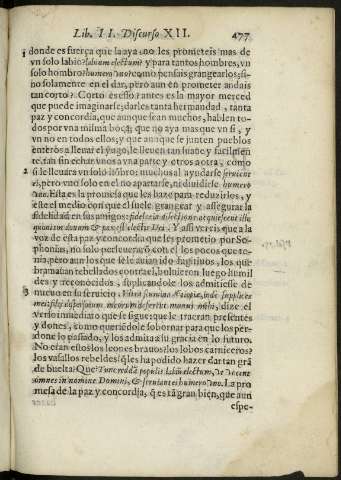 Lib. II. Discurso XII. 477
1 donde es fuerça que la aya, no les prometeis mas de
vn solo labio: labium electum: y para tantos hombres, vn
solo hombro: humero vno: como pensais grangearlos; si-
no solamente en el dar, pero aun en prometer andais
tan corto? Corto? es esso? antes es la mayor merced
que puede imaginarse; darles tanta hermandad, tanta
paz y concordia, que aunque sean muchos, hablen to-
dos por vna misma boca; que no aya mas que vn si, y
vn no en todos ellos; y que aunque se junten pueblos
enteros a lleuar el yugo, le lleuen tan suaue y facilmen
te, tan sin echar vnos a vna parte y otros a otra, como
2 si le lleuara vn solo hombro: muchos al ayudarse seruient
ei, pero vno solo en el no apartarse, ni diuidirse humero
vno. Esta es la promesa que les haze para reduzirlos, y
este el medio con que el suele grangear y assegurar la
fidelidad en sus amigos: fides
quonium donum & pax est electis Dei. Assi vereis que a la
voz de esta paz y concordia que les prometio por So-
phonias, no solo perseueraron con el los pocos que te-
nia, pero aun los que se le auian ido fugitiuos, los que
bramauan rebellados contra el, boluieron luego humil
des y reconocidos, suplicandole los admitiesse de
3 nueuo en su seruicio, Vltra flumina Æthiopiæ, inde supplices
mei; filij dispersorum meorum deferent munus mihi, dize el
verso inmediato que se sigue: que le traeran presentes
y dones, como queriendole sobornar para que los per-
done lo passado, y los admita a su gracia en lo futuro.
No eran estos los leones brauos? los lobos carniceros?
los vasallos rebeldes? q̃ les ha podido hazer dar tan grã
de buelta? Que? Tunc reddã populis labiũ electum, vt vocent
omnes in nomine Domini, & seruiant ei humero vno. La pro
mesa de la paz y concordia, q̃ es tã gran bien, que aun
espe-